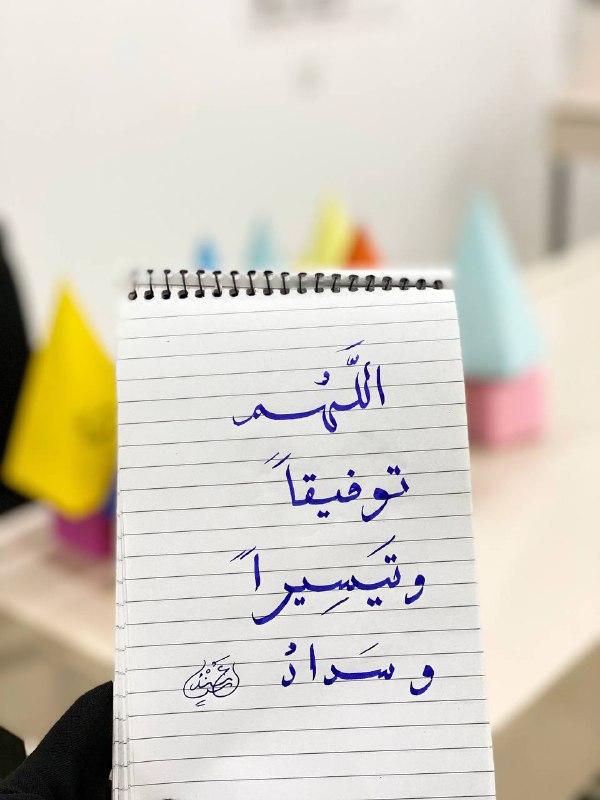 اللَّهُم
توفيقاً
وتَيسِيراً
وسَدادُ